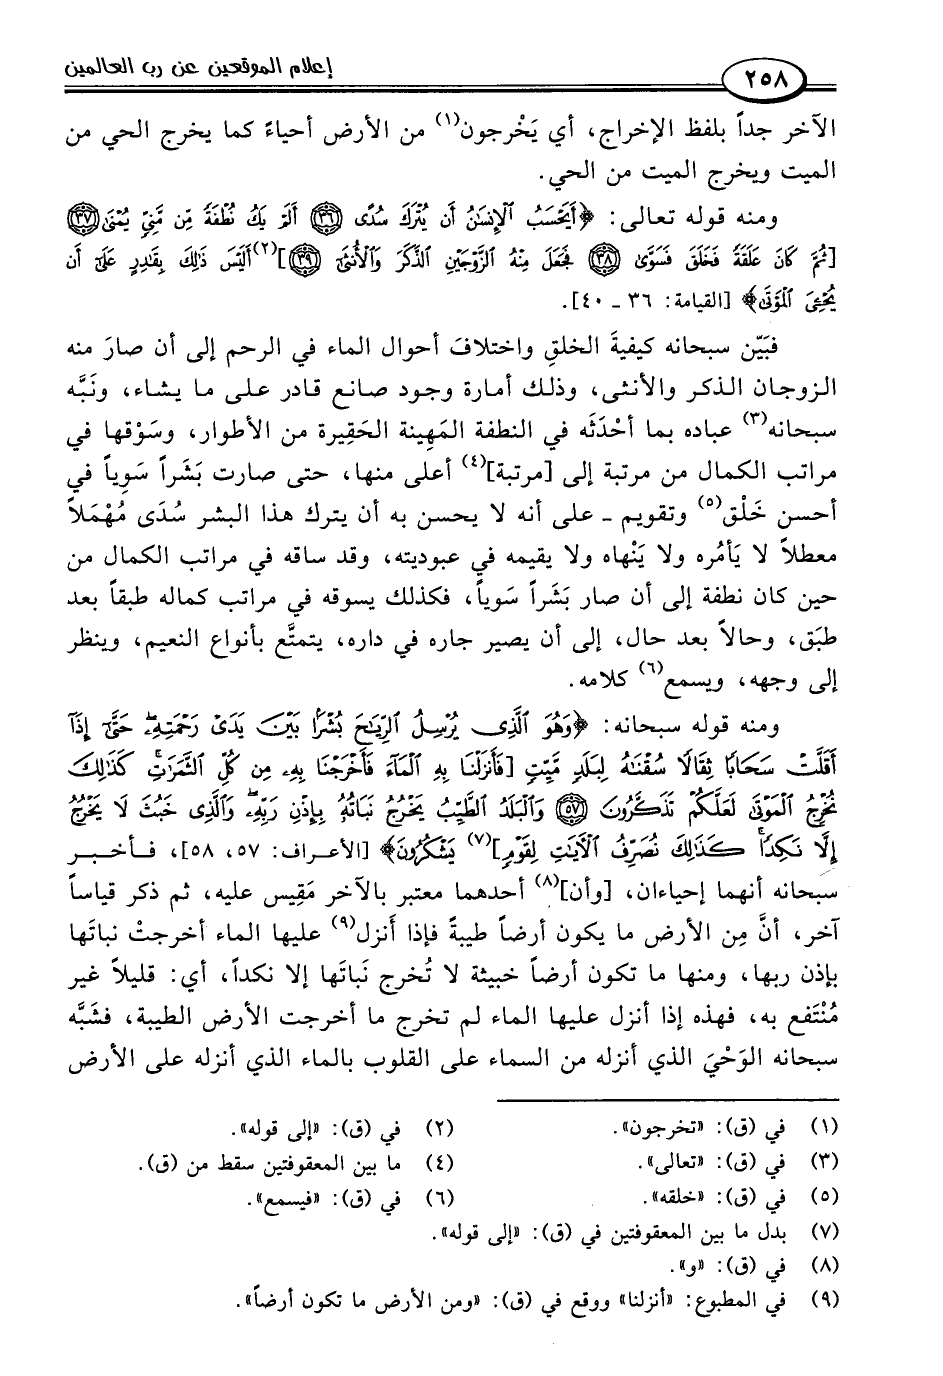 ٢٥٨ إعلام الموقعين عن رب العالمين
الآخر جداً بلفظ الإخراج، أي يَخْرجون(١) من الأرض أحياءً كما يخرج الحي من
الميت ويخرج الميت من الحي.
ومنه قوله تعالى: ﴿أَيَحْسَبُ ٱلْإِنسَٰنُ أَن يُتْرَكَ سُدًى ۝٣٦ أَلَمْ يَكُ نُطْفَةً مِّن مَّنِيٍّ يُمْنَىٰ ۝٣٧
[ثُمَّ كَانَ عَلَقَةً فَخَلَقَ فَسَوَّىٰ ۝٣٨ فَجَعَلَ مِنْهُ ٱلزَّوْجَيْنِ ٱلذَّكَرَ وَٱلْأُنثَىٰٓ ۝٣٩](٢) أَلَيْسَ ذَٰلِكَ بِقَٰدِرٍ عَلَىٰٓ أَن
يُحْۦِىَ ٱلْمَوْتَىٰ﴾ [القيامة: ٣٦ ـ ٤٠].
فبَيّن سبحانه كيفيةَ الخلقِ واختلافَ أحوال الماء في الرحم إلى أن صارَ منه
الزوجان الذكر والأنثى، وذلك أمارة وجود صانع قادر على ما يشاء، ونَبَّه
سبحانه(٣) عباده بما أحْدَثَه في النطفة المَهِينة الحَقِيرة من الأطوار، وسَوْقها في
مراتب الكمال من مرتبة إلى [مرتبة](٤) أعلى منها، حتى صارت بَشَراً سَوِياً في
أحسن خَلْق(٥) وتقويم ـ على أنه لا يحسن به أن يترك هذا البشر سُدَى مُهْمَلاً
معطلاً لا يَأمُره ولا يَنْهاه ولا يقيمه في عبوديته، وقد ساقه في مراتب الكمال من
حين كان نطفة إلى أن صار بَشَراً سَوياً، فكذلك يسوقه في مراتب كماله طبقاً بعد
طبَق، وحالاً بعد حال، إلى أن يصير جاره في داره، يتمتَّع بأنواع النعيم، وينظر
إلى وجهه، ويسمع(٦) كلامه.
ومنه قوله سبحانه: ﴿وَهُوَ ٱلَّذِى يُرْسِلُ ٱلرِّيَٰحَ بُشْرًۢا بَيْنَ يَدَىْ رَحْمَتِهِۦ حَتَّىٰٓ إِذَآ
أَقَلَّتْ سَحَابًا ثِقَالًا سُقْنَٰهُ لِبَلَدٍ مَّيِّتٍ [فَأَنزَلْنَا بِهِ ٱلْمَآءَ فَأَخْرَجْنَا بِهِۦ مِن كُلِّ ٱلثَّمَرَٰتِ كَذَٰلِكَ
نُخْرِجُ ٱلْمَوْتَىٰ لَعَلَّكُمْ تَذَكَّرُونَ ۝٥٧ وَٱلْبَلَدُ ٱلطَّيِّبُ يَخْرُجُ نَبَاتُهُۥ بِإِذْنِ رَبِّهِۦ وَٱلَّذِى خَبُثَ لَا يَخْرُجُ
إِلَّا نَكِدًا كَذَٰلِكَ نُصَرِّفُ ٱلْءَايَٰتِ لِقَوْمٍ](٧) يَشْكُرُونَ﴾ [الأعراف: ٥٧، ٥٨]، فـأخبـر
سبحانه أنهما إحياءان، [وأن](٨) أحدهما معتبر بالآخر مَقِيس عليه، ثم ذكر قياساً
آخر، أنَّ مِن الأرض ما يكون أرضاً طيبةً فإذا أَنزل(٩) عليها الماء أخرجتْ نباتَها
بإذن ربها، ومنها ما تكون أرضاً خبيثة لا تُخرج نَباتَها إلا نكداً، أي: قليلاً غير
مُنْتَفع به، فهذه إذا أنزل عليها الماء لم تخرج ما أخرجت الأرض الطيبة، فشَبَّه
سبحانه الوَحْيَ الذي أنزله من السماء على القلوب بالماء الذي أنزله على الأرض
(١) في (ق): «تخرجون». (٢) في (ق): «إلى قوله».
(٣) في (ق): «تعالى». (٤) ما بين المعقوفتين سقط من (ق).
(٥) في (ق): «خلقه». (٦) في (ق): «فيسمع».
(٧) بدل ما بين المعقوفتين في (ق): «إلى قوله».
(٨) في (ق): «و».
(٩) في المطبوع: «أنزلنا» ووقع في (ق): «ومن الأرض ما تكون أرضاً».